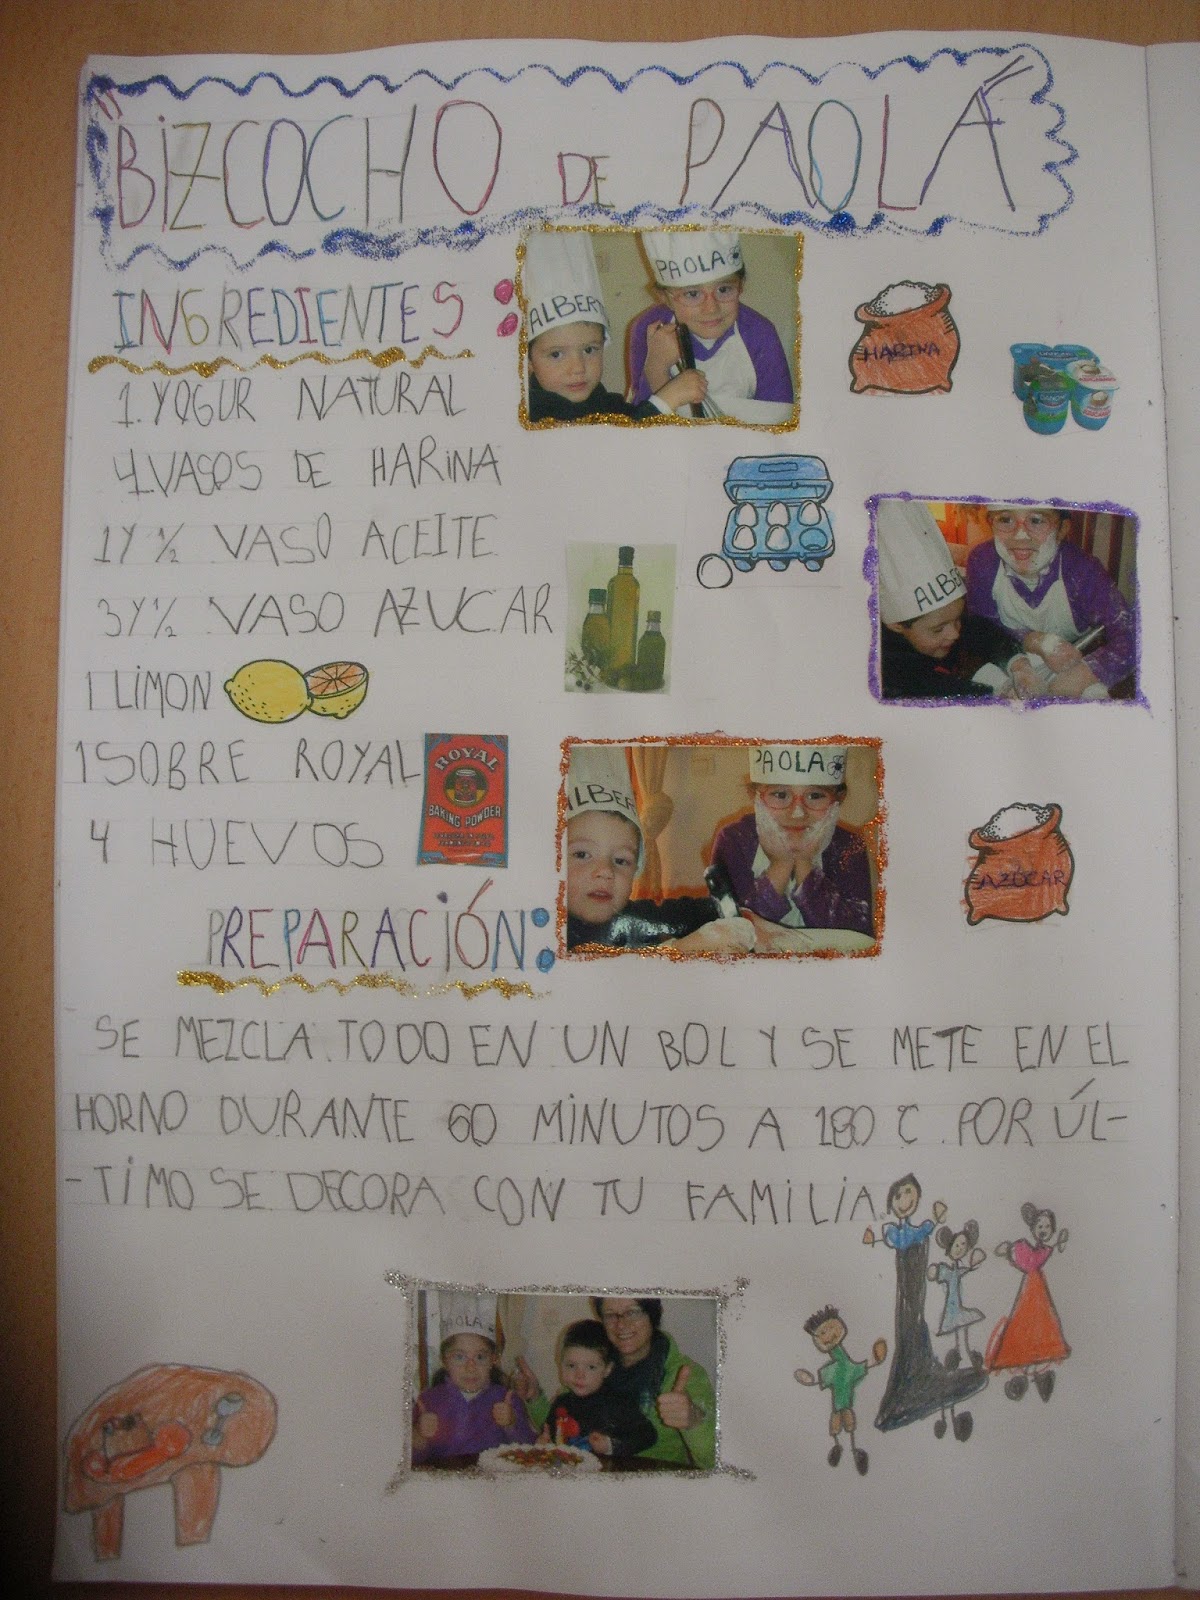 "BIZCOCHO DE PAOLA"
INGREDIENTES:
ALBER
PAOLA
HARINA
1 YOGUR NATURAL
4 VASOS DE HARINA
1 Y ½ VASO ACEITE
ALBE
3 Y ½ VASO AZUCAR
1 LIMON
1 SOBRE ROYAL
ROYAL
BAKING POWDER
ALBER
PAOLA
AZÚCAR
4 HUEVOS
PREPARACIÓN:
SE MEZCLA TODO EN UN BOL Y SE METE EN EL
HORNO DURANTE 60 MINUTOS A 180 C. POR ÚL-
-TIMO SE DECORA CON TU FAMILIA.
PAOLA